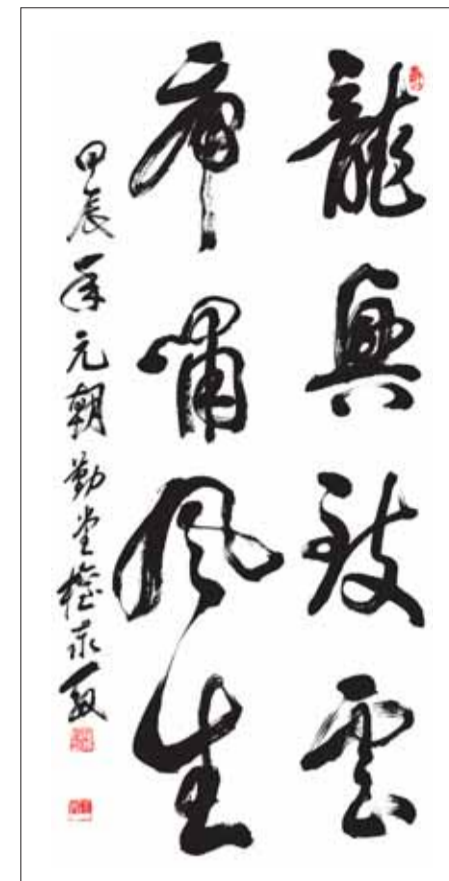 龍興致雲
虎嘯風生
甲辰年元朝勤堂權永敏